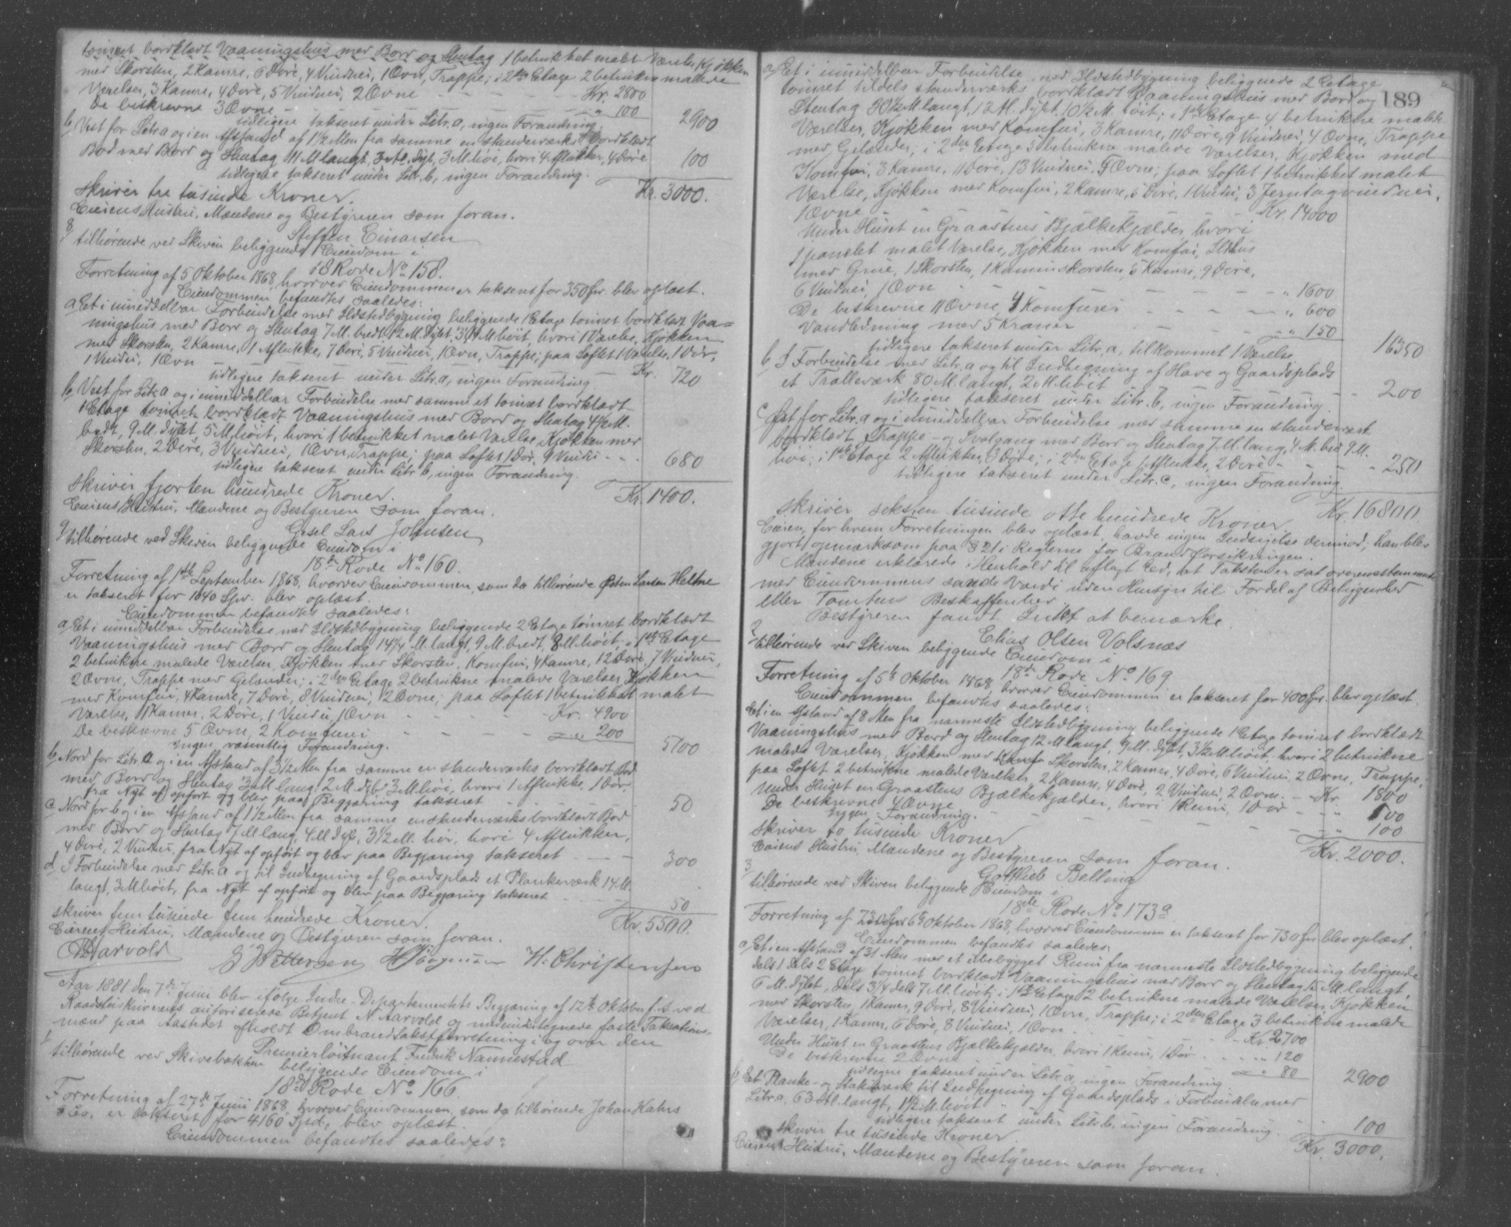 tømret bordklædt Vaaningshus med Bord og Stentag 1 betrukket malt Værelse, Kjøkken
med Skorsten, 2 Kamre, 6 Døre, 4 Vinduer, 1 Ovn, Trappe; i 2den Etage 2 betrukne malede
Værelser, 3 Kamre, 4 Døre, 5 Vinduer, 2 Ovne - - - Kr. 2800
De beskrevne 3 Ovne - - - " 100 2900
tidligere takseret under Litr. a, ingen Forandring.
b, Vest for Litr. a og i en Afstand af 1½ Alen fra samme en standerværks bordklædt
Bod med Bord og Stentag 11 Al. langt, 3 Al. dybt, 3 Al. høi, hvori 4 Aflukker, 4 Døre 100
tidligere takseret under Litr. b, ingen Forandring.
skriver tre tusinde Kroner. Kr. 3000.
Eierens Hustru, Mændene og Bestyreren som foran.
8
Steffen Einarsen
tilhørende ved Skiven beliggende Eiendom i
18 Rode No 158.
Forretning af 5 Oktober 1868, hvorover Eiendommen er takseret for 350 Spr. blev oplæst.
Eiendommen befandtes saaledes:
a, Et i umiddelbar Forbindelse med Ildstedbygning beliggende 1 Etage tømret bordklædt Vaa=
ningshus med Bord og Stentag 7 Al. bredt, 12 Al. dybt, 3¾ Al. høit, hvori 1 Værelse, Kjøkken
med Skorsten, 2 Kamre, 1 Aflukke, 7 Døre, 5 Vinduer, 1 Ovn, Trappe; paa Loftet 1 Værelse, 1 Dør,
1 Vindu, 1 Ovn - - - Kr. 720
tidligere takseret under Litr. a, ingen Forandring
b, Vest for Litr. a og i umiddelbar Forbindelse med samme et tømret bordklædt
1 Etage Vaaningshus med Bord og Stentag 4½ Al.
bredt, 9 Al. dybt 5 Al. høit, hvori 1 betrukket malet Værelse, Kjøkken med
Skorsten, 2 Døre, 3 Vinduer, 1 Ovn, Trappe; paa Loftet 1 Dør, 9 Vindu - - - 680
tidligere takseret under Litr. b, ingen Forandring.
skriver fjorten hundrede Kroner. Kr. 1400.
Eierens Hustru, Mændene og Bestyreren som foran.
9
Lars Johnsen
tilhørende ved Skiven beliggende Eiendom i
18de Rode No 160.
Forretning af 1ste September 1868, hvorover Eiendommen, som da tilhørende Østen Larsen Heltne
er takseret for 1040 Spr. blev oplæst.
Eiendommen befandtes saaledes:
a, Et i umiddelbar Forbindelse med Ildstedbygning beliggende 2 Etage tømret bordklædt
Vaaningshus med Bord og Stentag 14¼ Al. langt, 9 Al. bredt, 8 Al. høit; i 1ste Etage
2 betrukne malede Værelser, Kjøkken med Skorsten, Komfur, 4 Kamre, 12 Døre, 7 Vinduer,
2 Ovne, Trappe med Gelænder; i 2den Etage 2 betrukne malede Værelser, Kjøkken
med Komfur, 4 Kamre, 7 Døre, 8 Vinduer, 2 Ovne; paa Loftet 1 betrukket malet
Værelse, 1 Kamer, 2 Døre, 1 Vindu, 1 Ovn - - - Kr. 4900
De beskrevne 5 Ovne, 2 Komfurer - - - 200 5100
Ingen væsentlig Forandring.
b, Nord for Litr. a og i en Afstand af 3½ Alen fra samme en standerværks bordklædt Bod
med Bord og Stentag 3 Al. lang, 2 Al. dyb, 3 Al. høi, hvori 1 Aflukke, 1 Dør,
fra Nyt af opført og blev paa Begjæring takseret - - - 50
c, Nord for b, og i en Afstand af 1½ Alen fra samme en standerværks bordklædt Bod
med Bord og Stentag 7 Al. lang, 4 Al. dyb, 3½ Al. høi, hvori 4 Aflukker,
4 Døre, 2 Vinduer, fra Nyt af opført og blev paa Begjæring takseret - - - 300
d, I Forbindelse med Litr. a og til Indhegning af Gaardsplads et Plankeværk 14 Al.
langt, 3 Al. høit, fra Nyt af opført og blev paa Begjæring takseret - - - 50
skriver fem tusinde fem hundrede Kroner. Kr. 5500.
Eierens Hustru, Mændene og Bestyreren som foran.
N Aarvold J J Pettersen H. Christensen
Aar 1881 den 7de Juni blev ifølge Indre-Departementets Begjæring af 12te Oktober f. A. ved
Raadstueskriverens autoriserede Betjent N. Aarvold og undertegnede faste Taxations-
mænd paa Aastedet afholdt Ombrandtakstforretning i og over den
1
Premierløitnant Fredrik Nannestad
tilhørende ved Skivebakken beliggende Eiendom i
18de Rode No 166
Forretning af 27de Juni 1868, hvorover Eiendommen, som da tilhørende Johan Kahrs
er takseret for 4160 Spd., blev oplæst.
Eiendommen befandtes saaledes:
189
a, Et i umiddelbar Forbindelse med Ildstedbygning beliggende 2 Etage
tømret tildels standerværks bordklædt Vaaningshus med Bord og
Stentag 30½ Al. langt, 12 Al. dybt, 10½ Al. høit; i 1ste Etage 4 betrukne malede
Værelser, Kjøkken med Komfur, 3 Kamre, 11 Døre, 9 Vinduer, 4 Ovne, Trappe
med Gelænder; i 2den Etage 5 betrukne malede Værelser, Kjøkken med
Komfur, 3 Kamre, 11 Døre, 13 Vinduer, 5 Ovne; paa Loftet 1 betrukket malet
Værelse, Kjøkken med Komfur, 2 Kamre, 6 Døre, 1 Vindu, 3 Jerntagvinduer,
1 Ovne - - - Kr. 14000
Under Huset en Graastens Bjælkekjælder, hvori
1 panelet malet Værelse, Kjøkken med Komfur, Ildhus
med Grue, 1 Skorsten, 1 Kaminskorsten, 5 Kamre, 9 Døre,
6 Vinduer, 1 Ovn - - - " 1600
De beskrevne 11 Ovne, 4 Komfurer - - - " 600
Vandledning med 5 Kraner - - - " 150 16350
tidligere takseret under Litr. a, tilkommet 1 Værelse.
b, I Forbindelse med Litr. a og til Indhegning af Have og Gaardsplads
et Tralleværk 80 Al. langt, 2 Al. høit - - - 200
tidligere takseret under Litr. b, ingen Forandring.
c, Øst for Litr. a og i umiddelbar Forbindelse med samme en standerværk
bordklædt Trappe- og Svalgang med Bord og Stentag 7 Al. lang, 4 Al. bred 9 Al.
høi; i 1ste Etage 2 Aflukker, 3 Døre; i 2den Etage 1 Aflukke, 2 Døre - - - 250
tidligere takseret under Litr. c, ingen Forandring.
skriver seksten tusinde otte hundrede Kroner. Kr. 16800
Eieren, for hvem Forretningen blev oplæst, havde ingen Indsigelse derimod; han blev
gjort opmærksom paa § 21 i Reglerne for Brandforsikringen.
Mændene erklærede i Henhold til aflagt Ed, at Taksten er sat overensstemmende
med Eiendommens sande Værdi uden Hensyn til Fordel af Beliggenhed
eller Tomtens Beskaffenhed.
Bestyreren fandt Intet at bemærke.
2
Elias Olsen Volsnæs
tilhørende ved Skiven beliggende Eiendom i
18de Rode No 169
Forretning af 5te Oktober 1868, hvorover Eiendommen er takseret for 400 Spr. blev oplæst.
Eiendommen befandtes saaledes:
Et i en Afstand af 8 Alen fra nærmeste Ildstedbygning beliggende 1 Etage tømret bordklædt
Vaaningshus med Bord og Stentag 12 Al. langt, 9 Al. dybt, 3½ Al. høit, hvori 2 betrukne
malede Værelser, Kjøkken med Skorsten, 2 Kamre, 4 Døre, 6 Vinduer, 2 Ovne, Trappe;
paa Loftet 2 betrukne malede Værelser, 2 Kamre, 4 Døre, 2 Vinduer, 2 Ovne - - Kr. 1800
Under Huset en Graastens Bjælkekjælder, hvori 1 Rum, 1 Dør - - - " 100
De beskrevne 4 Ovne - - - " 100
Ingen Forandring.
skriver to tusinde Kroner Kr. 2000.
Eierens Hustru, Mændene og Bestyreren som foran.
3
Gotthilf Belling
tilhørende ved Skiven beliggende Eiendom i
18de Rode No 173a
Forretning af 6te Oktober 1868, hvorover Eiendommen er takseret for 730 Spr. blev oplæst.
Eiendommen befandtes saaledes:
a, Et i en Afstand af 31 Alen med et ubebygget Rum fra nærmeste Ildstedbygning beliggende
dels 1 dels 2 Etage tømret bordklædt Vaaningshus med Bord og Stentag Al. langt
6 Al. dybt, dels 3¾ dels 7 Al. høit; i 1ste Etage 2 betrukne malede Værelser, Kjøkken
med Skorsten, 1 Kamer, 9 Døre, 8 Vinduer, 1 Ovn, Trappe; i 2den Etage 3 betrukne malede
Værelser, 1 Kamer, 6 Døre, 8 Vinduer, 1 Ovn - - - Kr. 2700
Under Huset en Graastens Bjælkekjælder, hvori 1 Rum, 1 Dør - - - " 120
De beskrevne 2 Ovne - - - " 80 2900
tidligere takseret under Litr. a, ingen Forandring.
b, Et Planke- og Stakitværk til Indhegning af Gaardsplads i Forbindelse med
Litr. a, 63 Al. langt, 1½ Al. høit - - - 100
tidligere takseret under Litr. b, ingen Forandring.
skriver tre tusinde Kroner. Kr. 3000.
Eierens Hustru, Mændene og Bestyreren som foran.